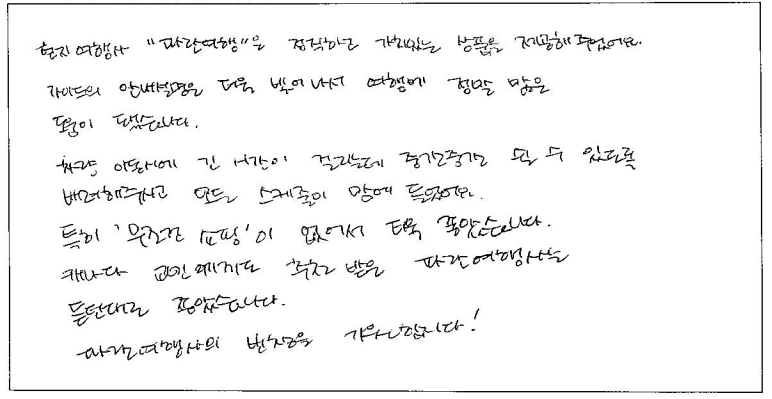 현지 여행사 "파란여행"은 정직하고 가치있는 상품을 제공해 주었어요.
가이드의 안내설명은 더욱 빛이나서 여행에 정말 많은
도움이 됐습니다.
차량 이동시에 긴 시간이 걸리는데 중간중간 쉴 수 있도록
배려해주시고 모든 스케줄이 맘에 들었어요.
특히 '무조건 쇼핑'이 없어서 더욱 좋았습니다.
캐나다 교민에게도 추천 받은 파란여행사는
듣던대로 좋았습니다.
파란여행사의 번창을 기원합니다!